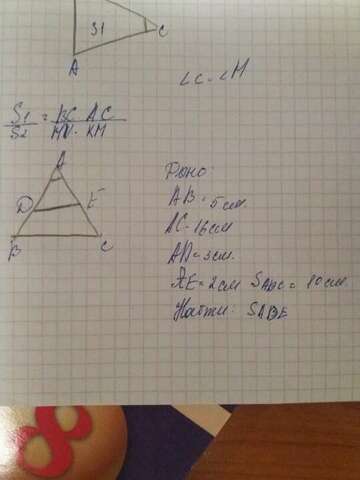 S1
C
A
∠C = ∠M
S1/S2 = BC · AC / MN · KM
A
D E
B C
Дано:
AB = 5 см
AC - 16 см
AD = 3 см
AE = 2 см SABC = 10 см
Найти: SADE
8